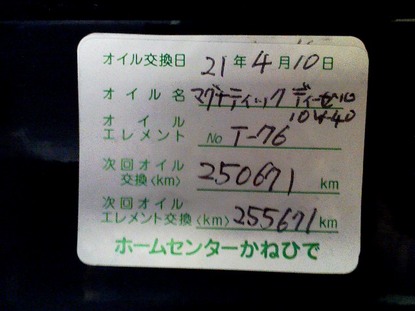 オイル交換日 21年4月10日
オイル名 マグナティック ディーゼル
10W-40
オイル
エレメント No T-76
次回オイル
交換〈km〉 250671 km
次回オイル
エレメント交換〈km〉 255671 km
ホームセンターかねひで